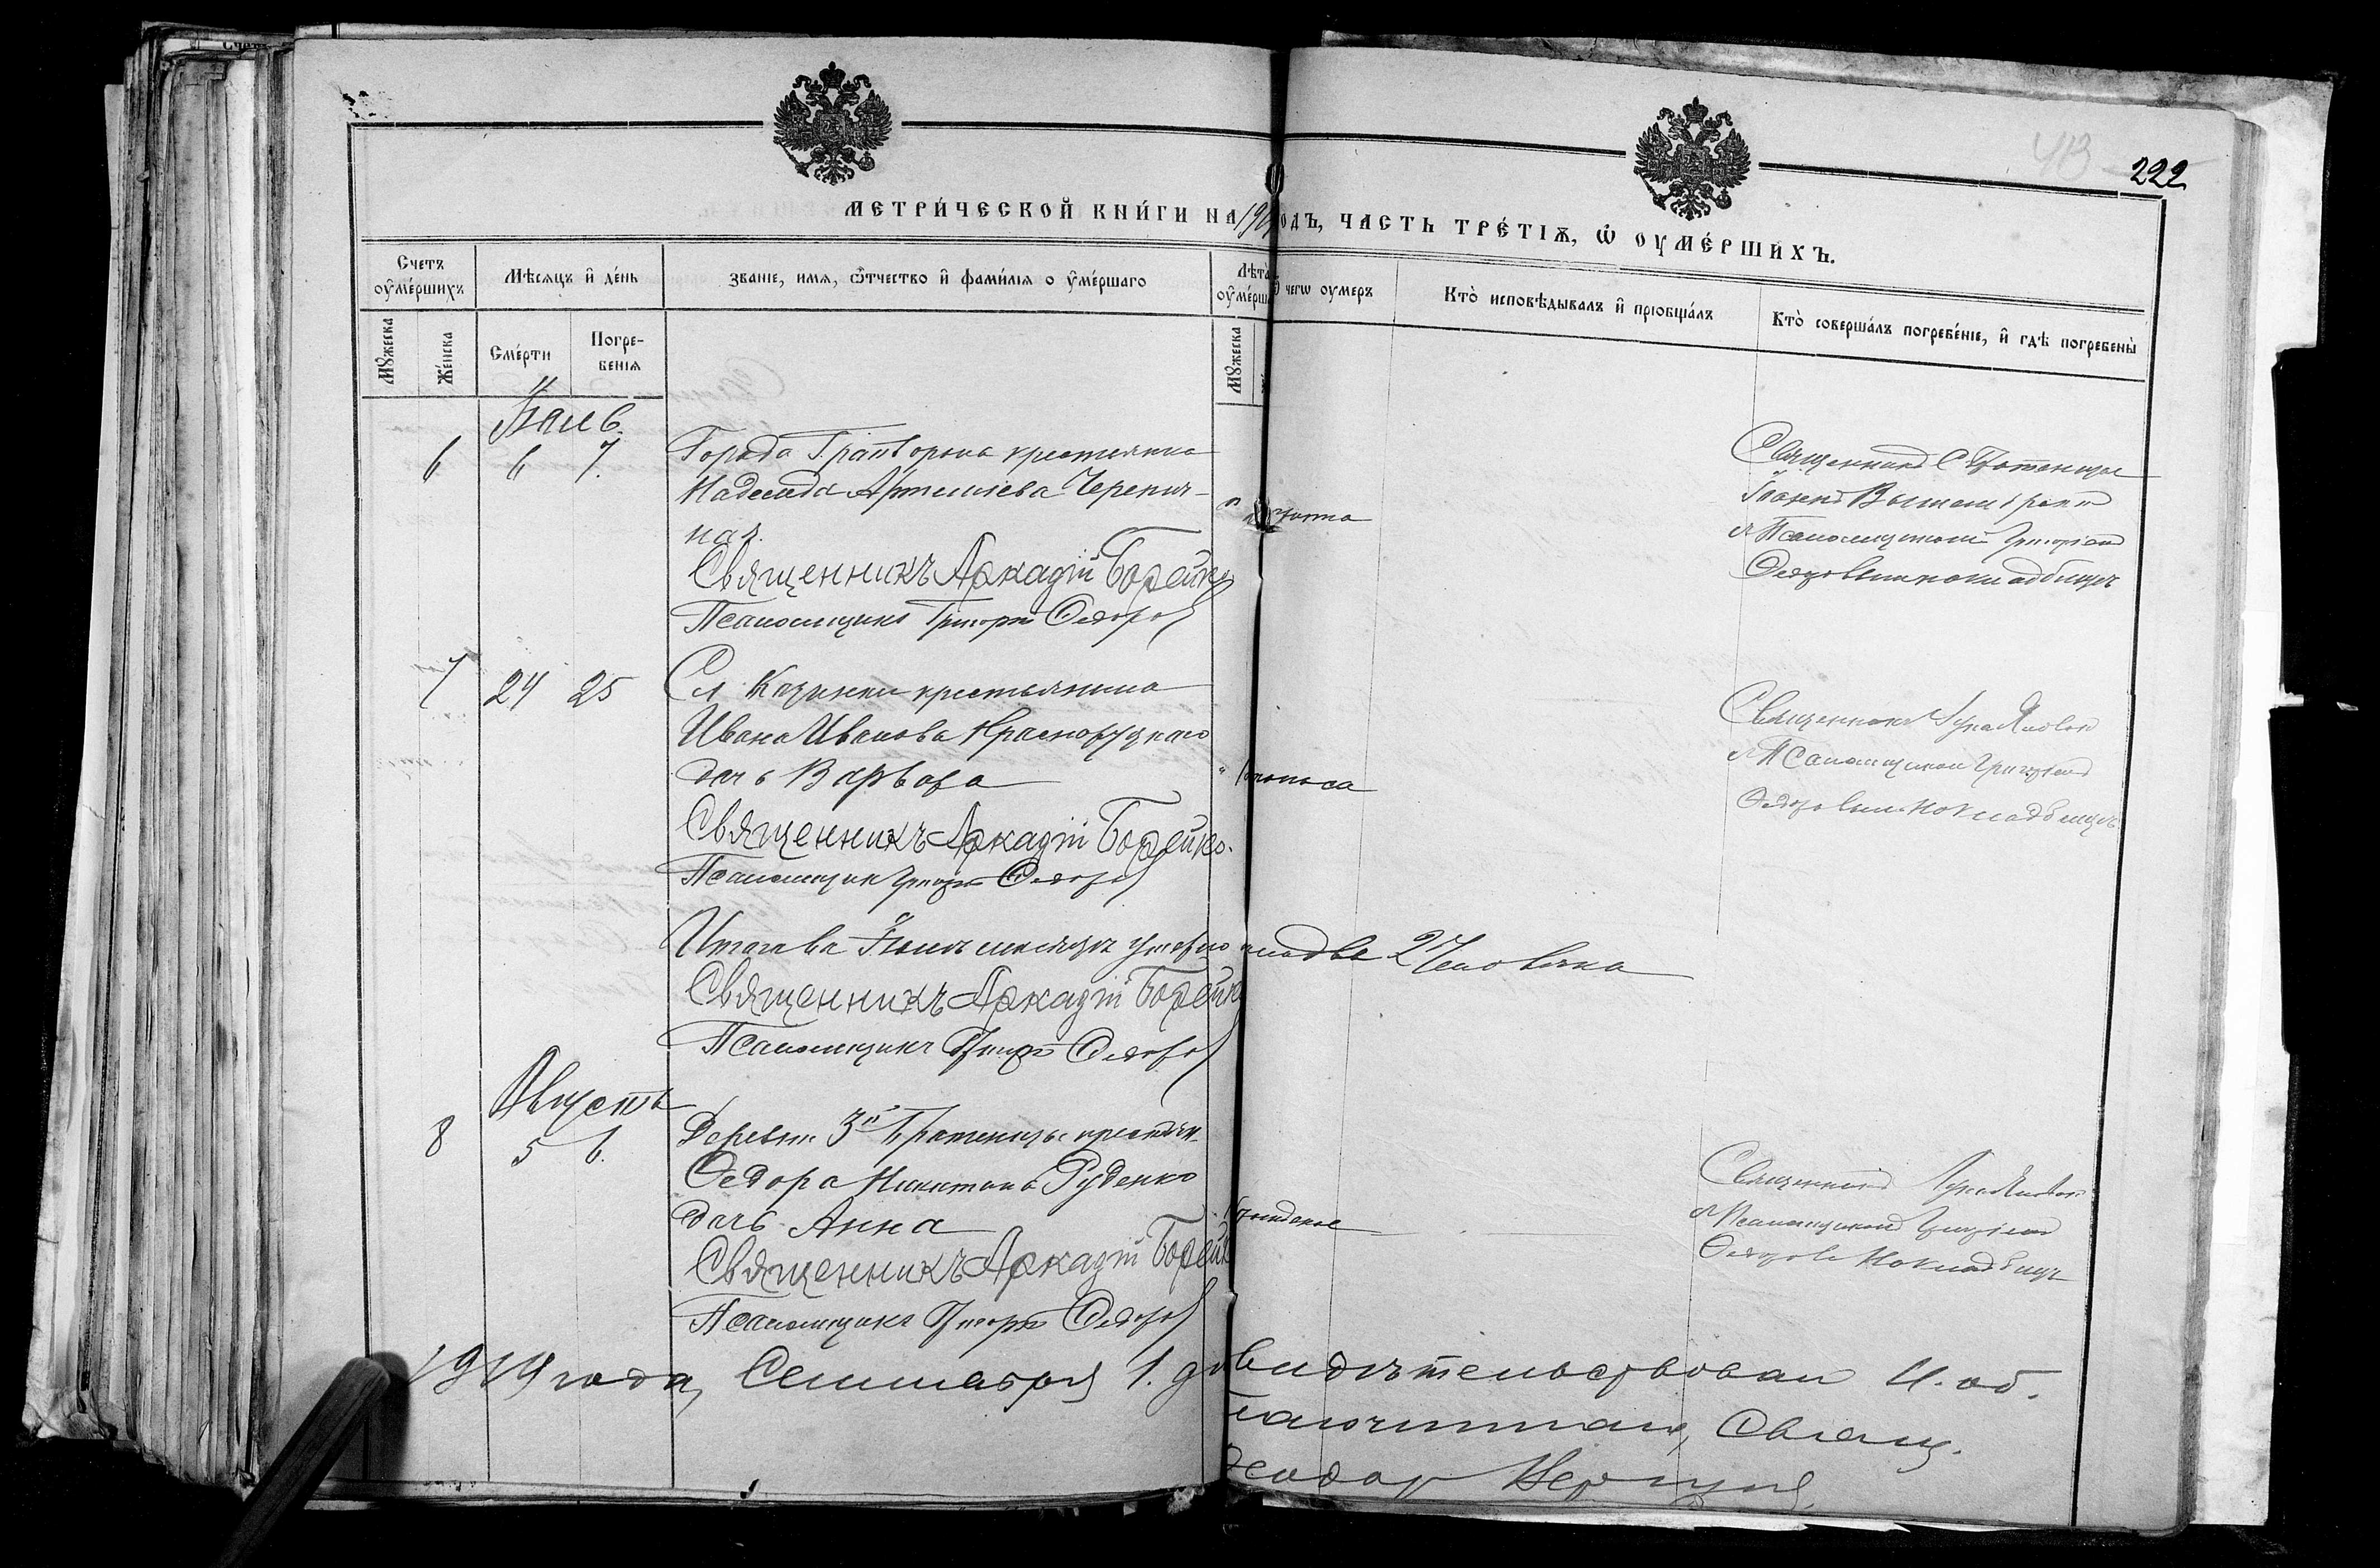 413
222
МЕТРИ́ЧЕСКОЙ КНИ́ГИ НА 191 ОДЪ, ЧАСТЬ ТРЕ́ТІѦ, Ѡ ОУМЕ́РШИХЪ.
Счетъ оуме́ршихъ
Мѣсяцъ и де́нь
Званіе, имя, ѿтчество и фами́лія оуме́ршаго
Лѣта оуме́рша
чегѡ оумеръ
Кто̀ исповѣ́дывалъ и пріобща́лъ
Кто̀ соверша́лъ погребе́ніе, и гдѣ погребены̀
Мꙋжеска
Же́нска
Сме́рти
Погре-
бенія
Мꙋжеска
Іюль
6 6 7. Города Грайворона крестьянка
Надежда Артемьева Черепич-
ная.
Священникъ Аркадій Борейко
Псаломщикъ Григорій Федоров
Священникъ С. Братеницы
Іоаннъ
и Псаломщикомъ Григоріемъ
Федоровымъ на кладбищѣ
7 24 25 Сл Казинки крестьянина
Ивана Иванова Краснорудцкаго
дочь Варвара
Священникъ Аркадій Борейко.
Псаломщик Григорій Федоров
поноса
Священникъ Лука Яковл
и Псаломщикомъ Григоріемъ
Федоровым на кладбищѣ
Итого въ Іюлѣ мѣсяцѣ умерло две 2 Человѣка
Священникъ Аркадій Борейк
Псаломщикъ Григорій Федоров
Августъ
8 5 6. Деревни 3й Братеницы крестьян
Федора Никитина Руденко
дочь Анна
Священникъ Аркадій Борейк
Псаломщикъ Григорій Федоров
Священникъ Лука Яковл
и Псаломщикомъ Григоріемъ
Федоров На кладбищѣ
1919 года, Сентября 1. дня свидѣтельствовал И. об.
Благочиннаго, Свящ.
Феодор